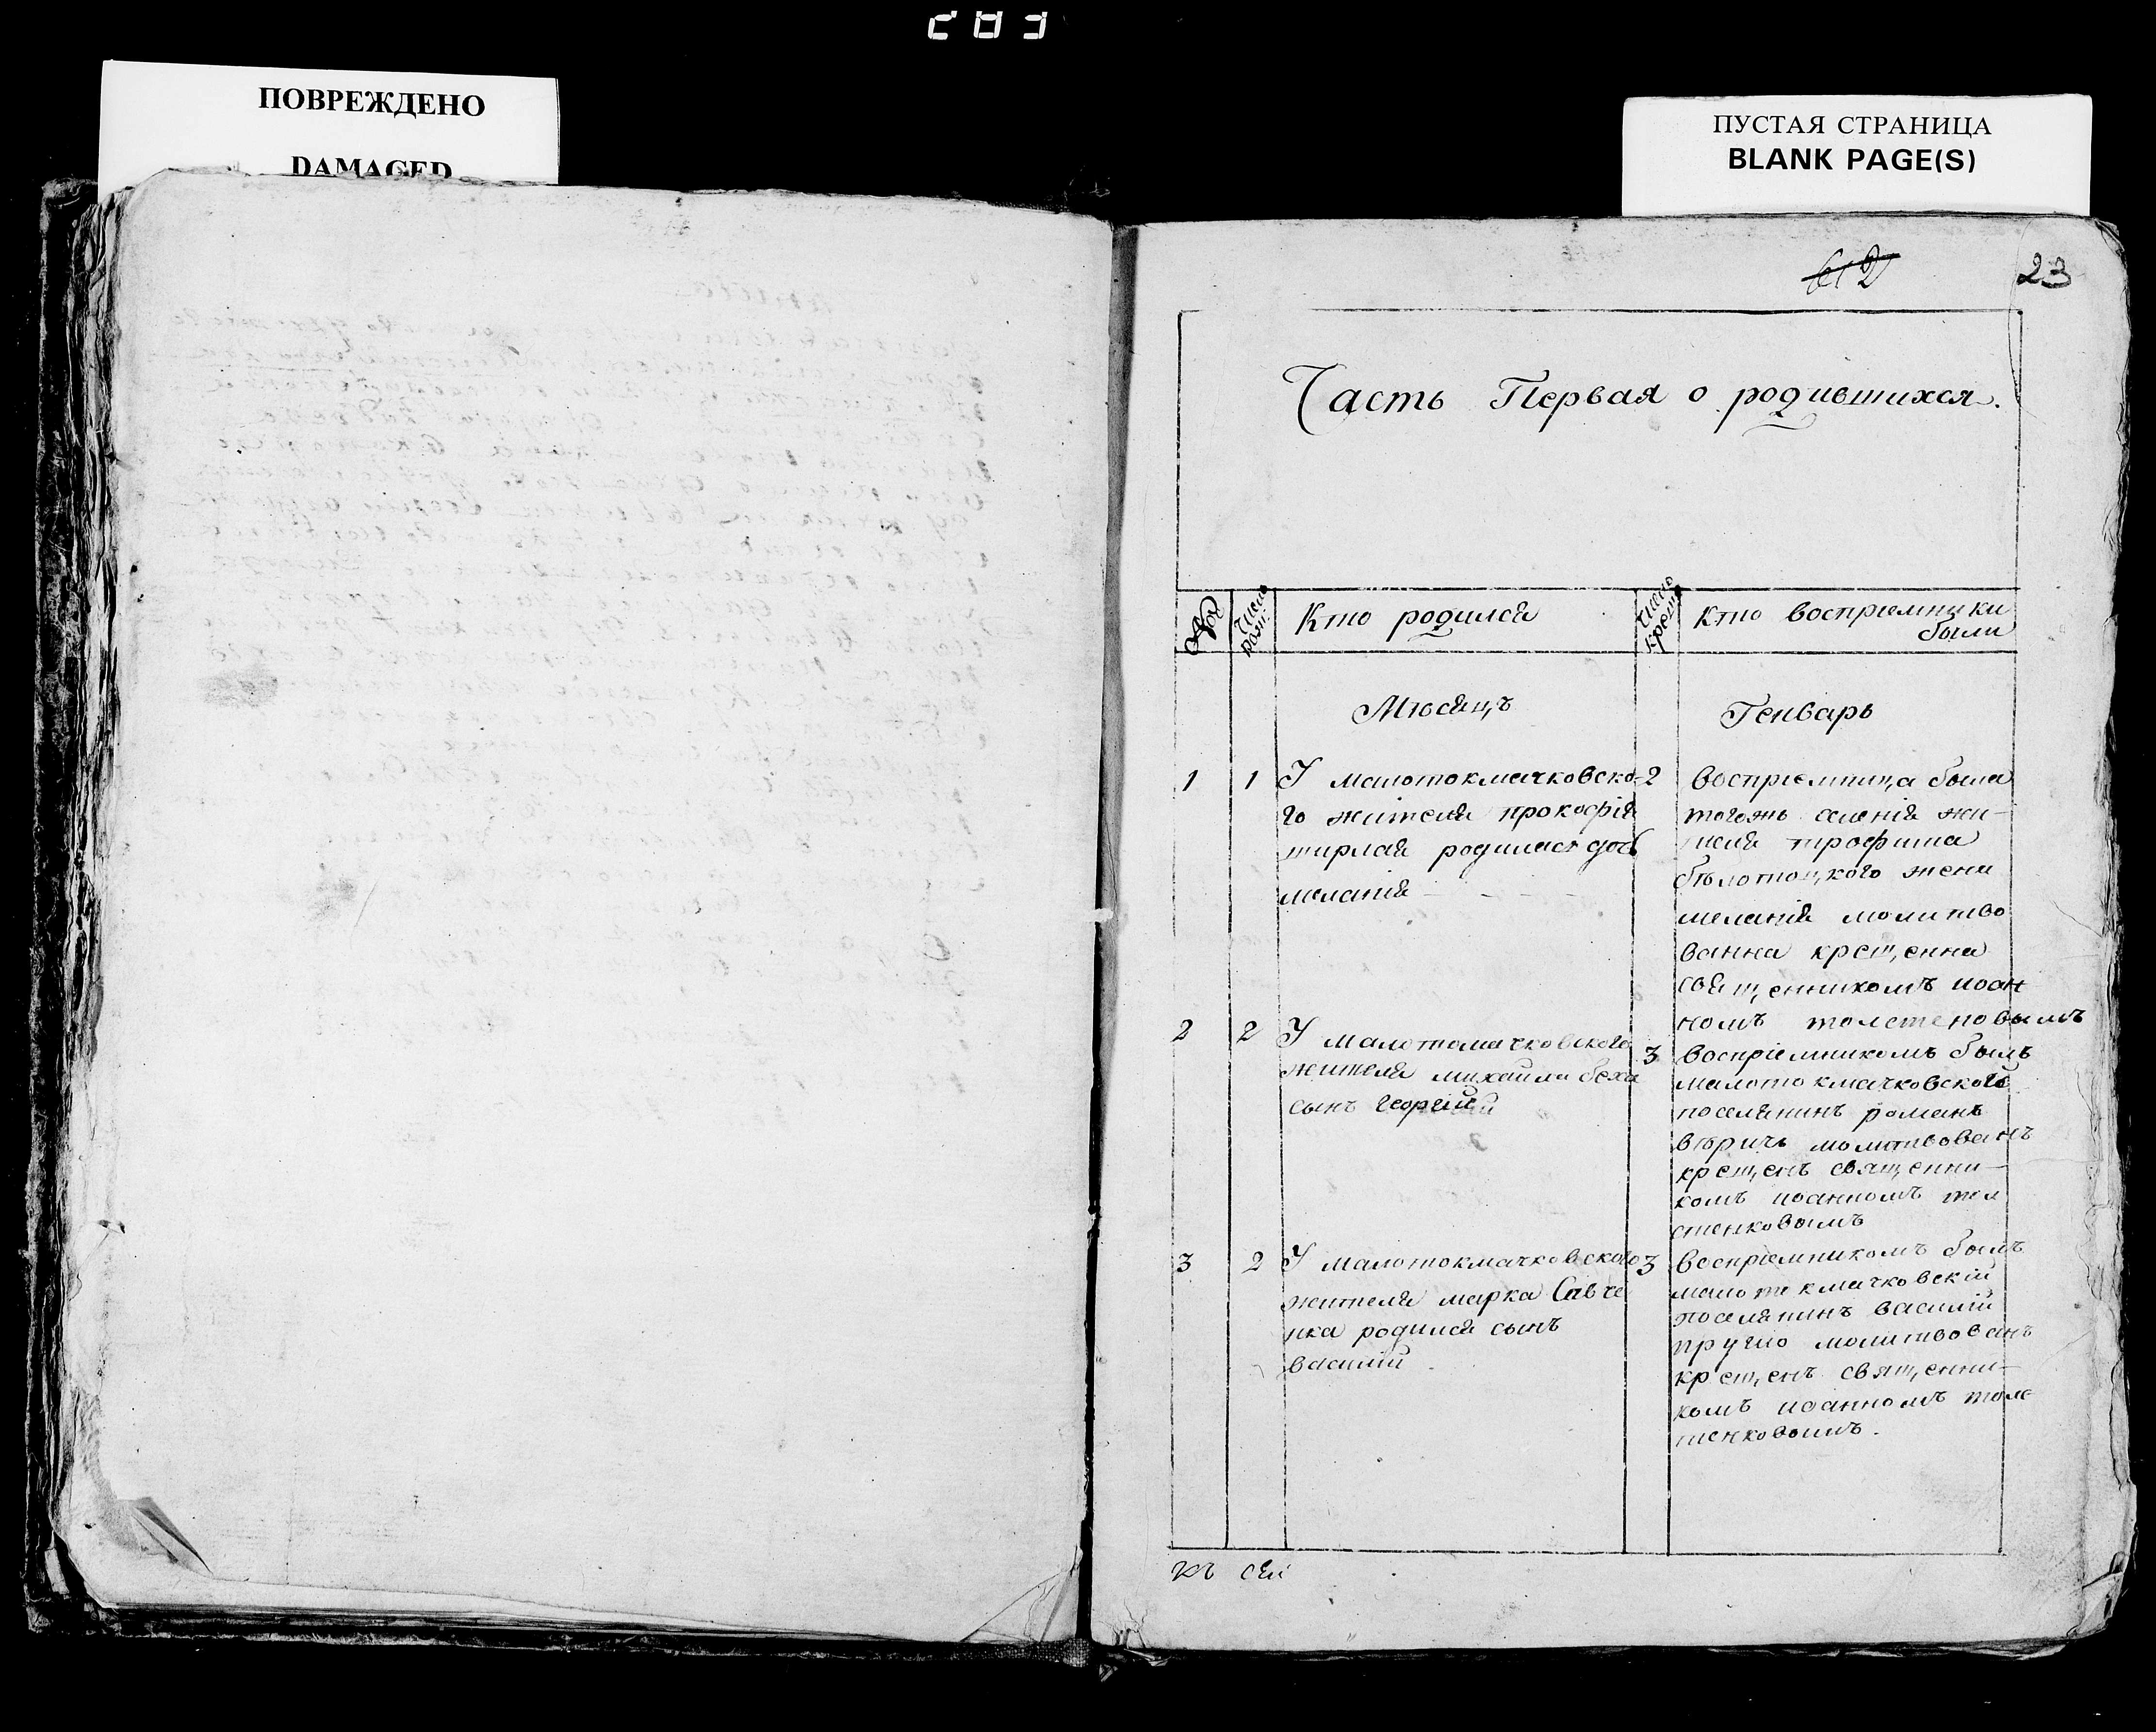 283
ПОВРЕЖДЕНО
DAMAGED
ПУСТАЯ СТРАНИЦА
BLANK PAGE(S)
23
Часть Первая о родившихся.
Число рож:
Кто родился
Число крещ:
Кто восприемники
были
Мѣсяцъ
Генварь
1 1 У малотокмачковско-
го жителя прокофія
ширлая родилась дочь
меланія
2 восприемница была
тогожъ селенія жи-
теля трофима
бѣлотоцкого жена
меланія молитво
ванна крещенна
священникомъ иоан
номъ толстеновымъ
2 2 У малотомачковского
жителя михайла беха
сынъ георгий
3 восприемникомъ былъ
малотокмачковской
поселянинъ романъ
вѣричь молитвованъ
крещенъ священни-
комъ иоанномъ тол
стенковымъ
3 2 У малотокмачковского
жителя марка Савче
нка родился сынъ
василій
3 восприемникомъ былъ
малотокмачковскій
поселянинъ василій
пругло молитвованъ
крещенъ священни-
комъ иоанномъ толс
тенковымъ.